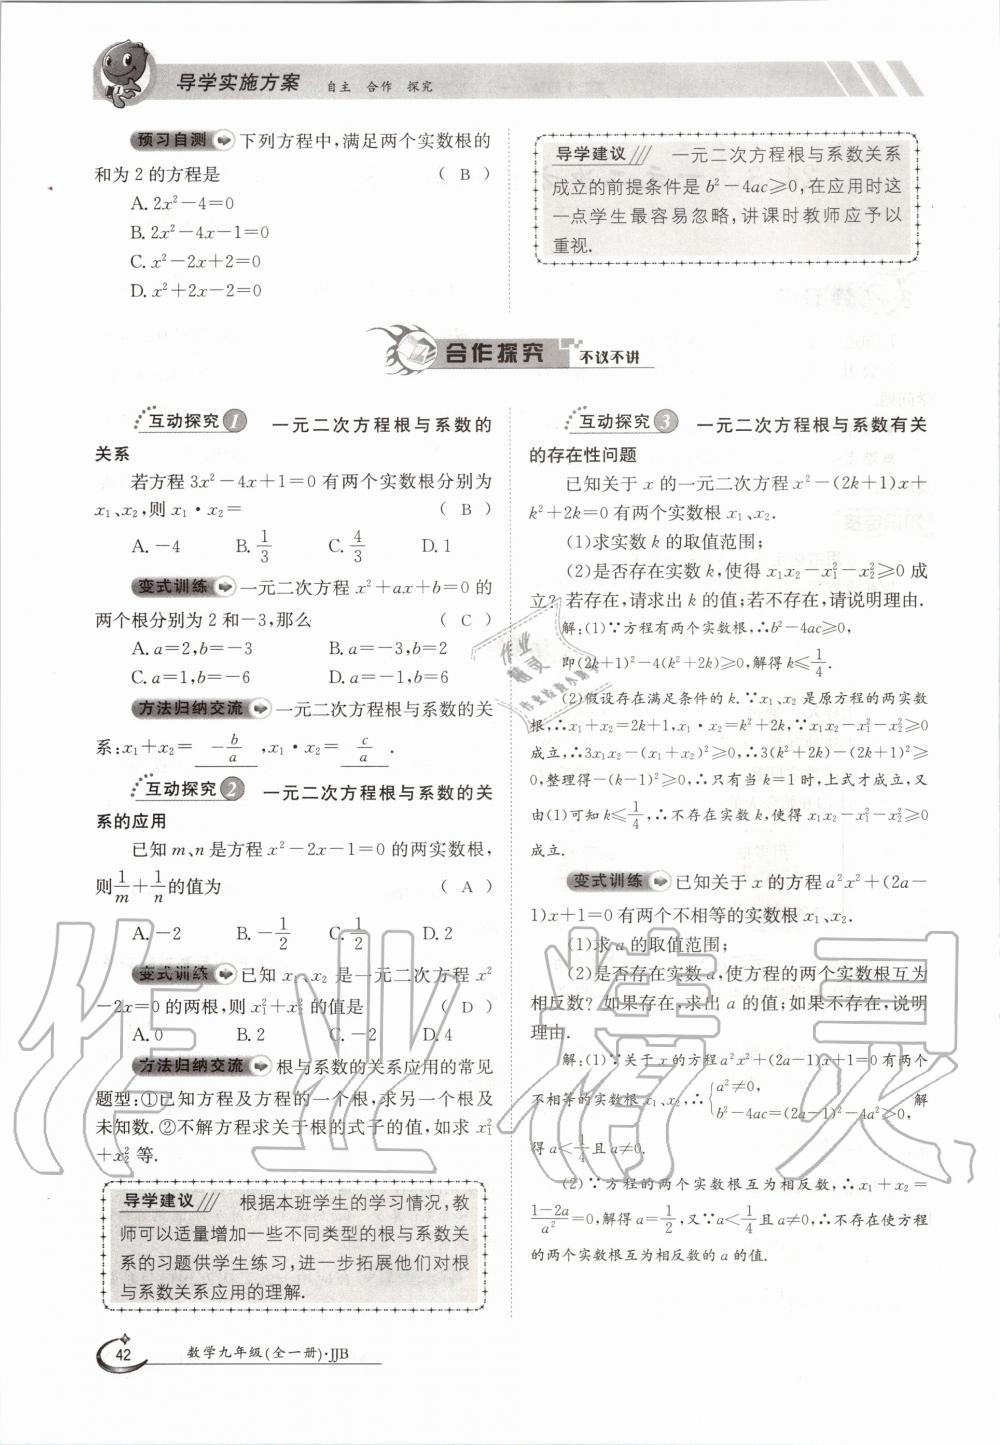 导学实施方案 自主 合作 探究
预习自测 下列方程中,满足两个实数根的
和为2的方程是 ( B )
A. 2x²-4=0
B. 2x²-4x-1=0
C. x²-2x+2=0
D. x²+2x-2=0
导学建议 一元二次方程根与系数关系
成立的前提条件是 b²-4ac≥0,在应用时这
一点学生最容易忽略,讲课时教师应予以
重视.
合作探究 不议不讲
互动探究 1 一元二次方程根与系数的
关系
若方程 3x²-4x+1=0 有两个实数根分别为
x₁、x₂,则 x₁·x₂= ( B )
A. -4 B. 1/3 C. 4/3 D. 1
变式训练 一元二次方程 x²+ax+b=0 的
两个根分别为 2 和-3,那么 ( C )
A. a=2,b=-3 B. a=-3,b=2
C. a=1,b=-6 D. a=-1,b=6
方法归纳交流 一元二次方程根与系数的关
系:x₁+x₂= -b/a ,x₁·x₂= c/a .
互动探究 2 一元二次方程根与系数的关
系的应用
已知 m、n 是方程 x²-2x-1=0 的两实数根,
则1/m+1/n的值为 ( A )
A. -2 B. -1/2 C. 1/2 D. 2
变式训练 已知 x₁、x₂ 是一元二次方程 x²
-2x=0 的两根,则 x₁²+x₂² 的值是 ( D )
A. 0 B. 2 C. -2 D. 4
方法归纳交流 根与系数的关系应用的常见
题型:①已知方程及方程的一个根,求另一个根及
未知数.②不解方程求关于根的式子的值,如求 x₁²
+x₂² 等.
导学建议 根据本班学生的学习情况,教
师可以适量增加一些不同类型的根与系数关
系的习题供学生练习,进一步拓展他们对根
与系数关系应用的理解.
互动探究 3 一元二次方程根与系数有关
的存在性问题
已知关于 x 的一元二次方程 x²-(2k+1)x+
k²+2k=0 有两个实数根 x₁、x₂.
(1)求实数 k 的取值范围;
(2)是否存在实数 k,使得 x₁x₂-x₁²-x₂²≥0 成
立?若存在,请求出 k 的值;若不存在,请说明理由.
解:(1)∵方程有两个实数根,∴b²-4ac≥0,
即(2k+1)²-4(k²+2k)≥0,解得 k≤1/4.
(2)假设存在满足条件的 k.∵x₁、x₂ 是原方程的两实数
根,∴x₁+x₂=2k+1,x₁·x₂=k²+2k,∵x₁x₂-x₁²-x₂²≥0
成立,∴3x₁x₂-(x₁+x₂)²≥0,∴3(k²+2k)-(2k+1)²≥
0,整理得-(k-1)²≥0,∴只有当 k=1 时,上式才成立,又
由(1)可知 k≤1/4,∴不存在实数 k,使得 x₁x₂-x₁²-x₂²≥0
成立.
变式训练 已知关于 x 的方程 a²x²+(2a-
1)x+1=0 有两个不相等的实数根 x₁、x₂.
(1)求 a 的取值范围;
(2)是否存在实数 a,使方程的两个实数根互为
相反数?如果存在,求出 a 的值;如果不存在,说明
理由.
解:(1)∵关于 x 的方程 a²x²+(2a-1)x+1=0 有两个
不相等的实数根 x₁、x₂,∴{a²≠0, b²-4ac=(2a-1)²-4a²>0, 解
得 a<1/4且 a≠0.
(2)∵方程的两个实数根互为相反数,∴x₁+x₂=
(1-2a)/a²=0,解得 a=1/2,又∵a<1/4且 a≠0,∴不存在使方程
的两个实数根互为相反数的 a 的值.
42 数学九年级(全一册)·JJB
作业精灵